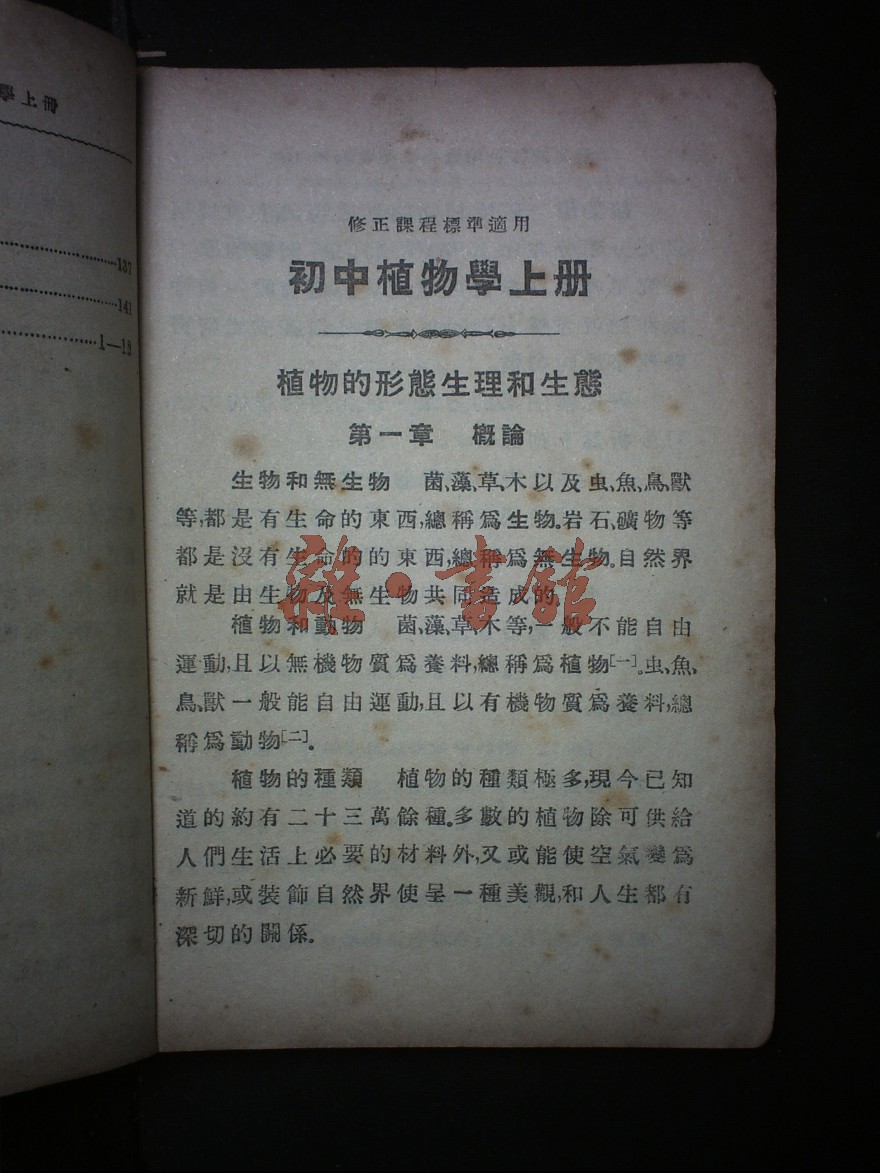 學上冊
137
141
1—13
修正課程標準適用
初中植物學上册
植物的形態生理和生態
第一章 概論
生物和無生物 菌、藻、草、木以及虫、魚、鳥、獸
等,都是有生命的東西,總稱爲生物。岩石、礦物等
都是沒有生命的的東西,總稱爲無生物。自然界
就是由生物及無生物共同造成的。
植物和動物 菌、藻、草、木等,一般不能自由
運動,且以無機物質爲養料,總稱爲植物[一]。虫、魚、
鳥、獸一般能自由運動,且以有機物質爲養料,總
稱爲動物[二]。
植物的種類 植物的種類極多,現今已知
道的約有二十三萬餘種。多數的植物除可供給
人們生活上必要的材料外,又或能使空氣變爲
新鮮,或裝飾自然界使呈一種美觀,和人生都有
深切的關係。
雜·書館